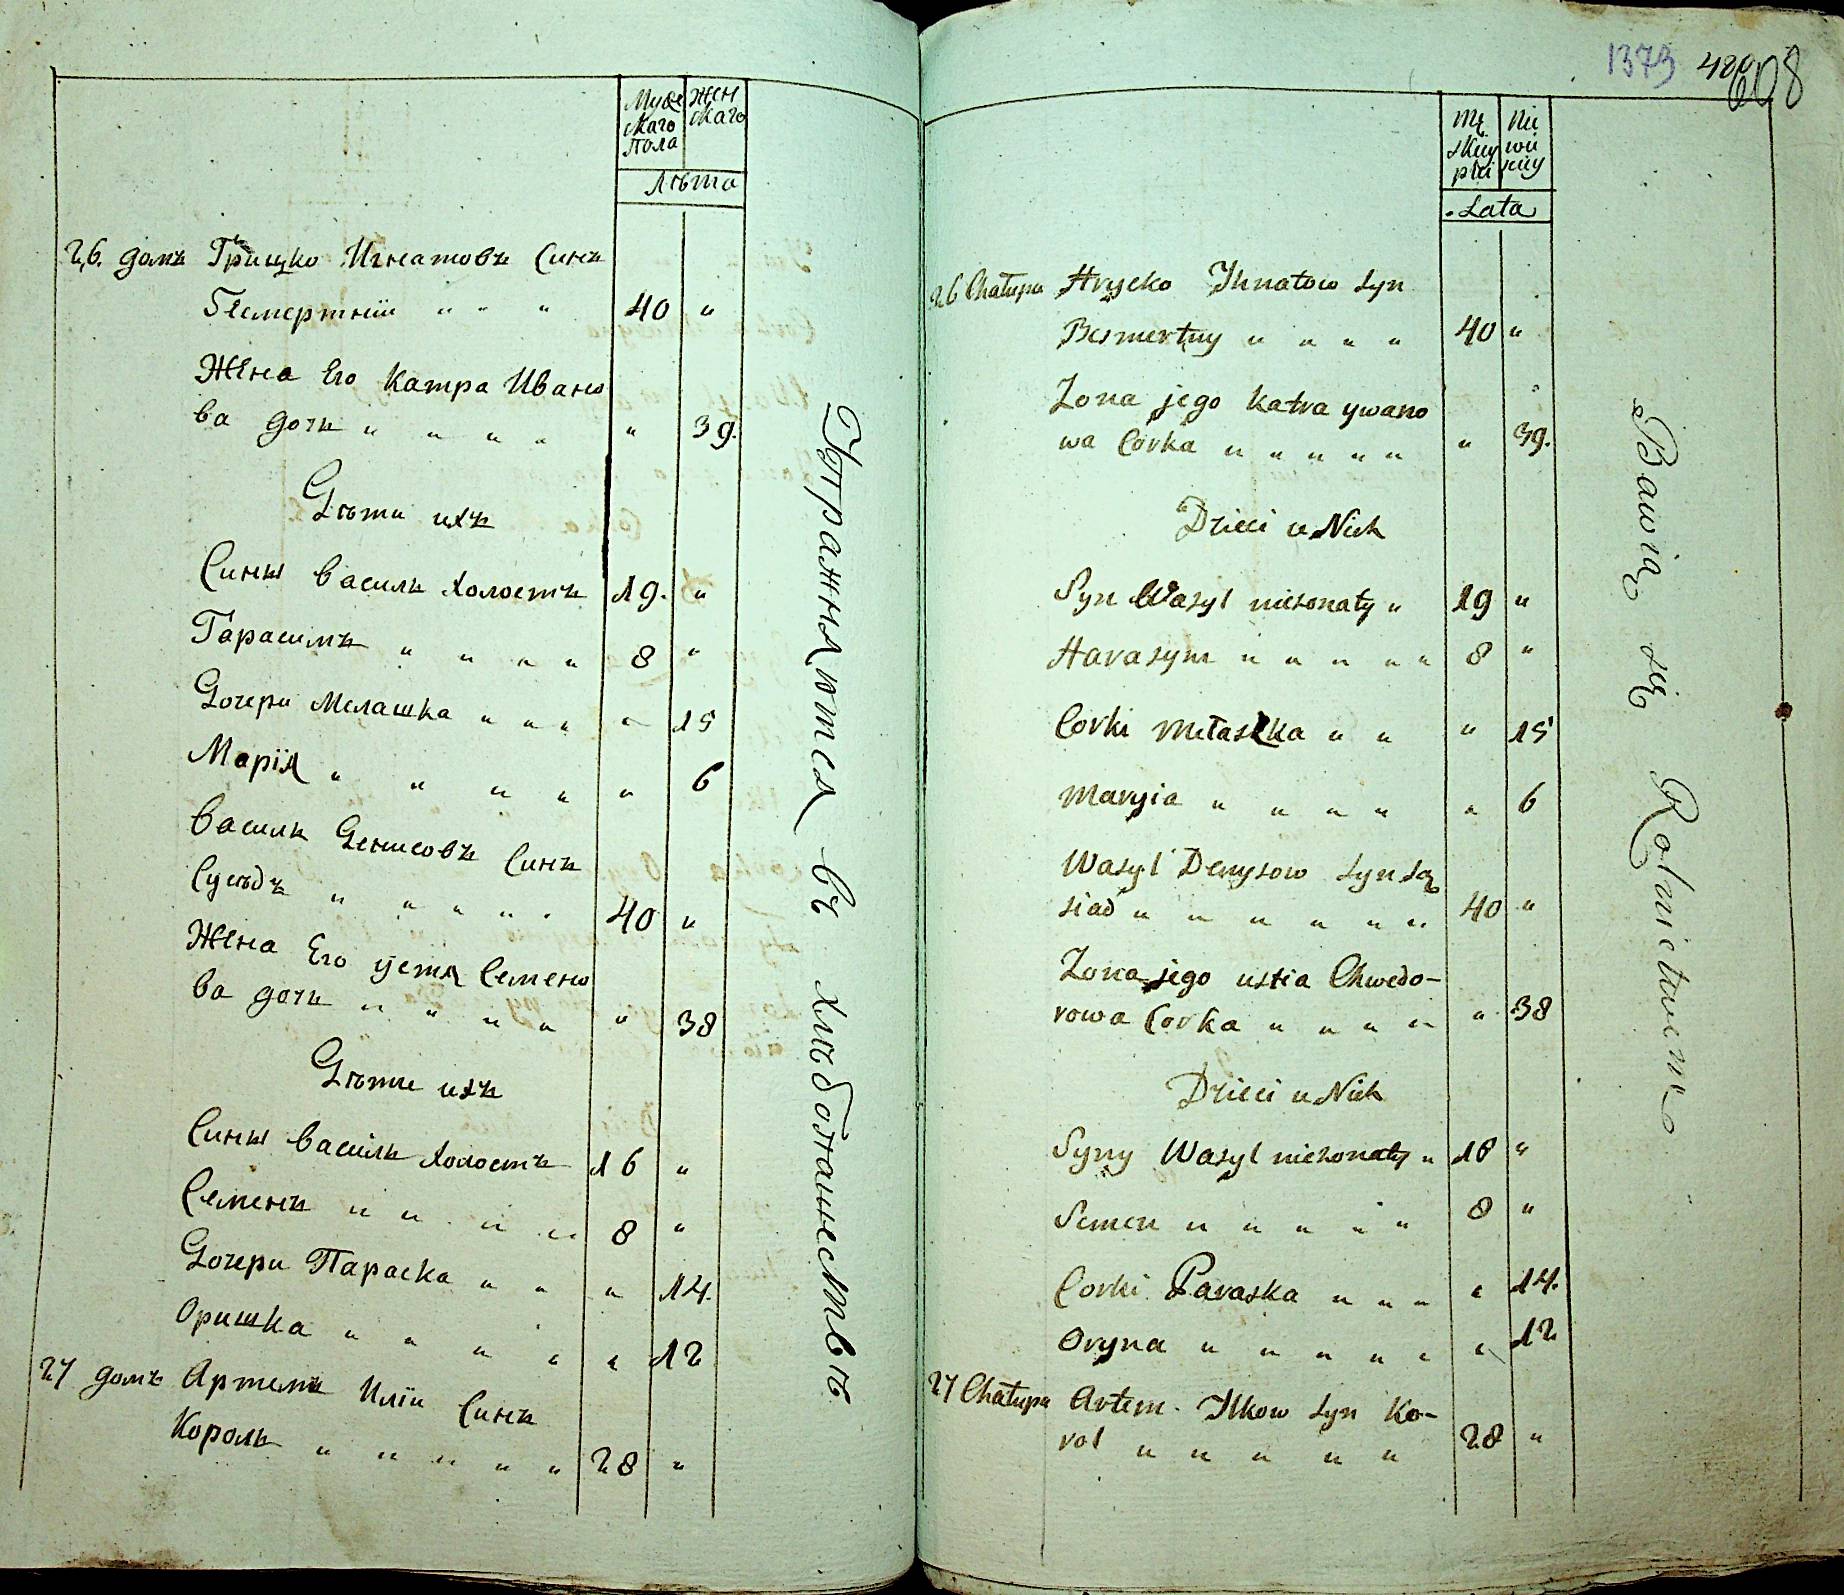 Мужескаго пола
Женскаго
Лѣта
26. домъ Грицко Игнатовъ Синъ
Безмертній " " " 40 "
Жена Его Катра Ивано
ва дочь " " " " " 39.
Дѣти ихъ
Сины Василь Холостъ 19. "
Гарасимъ " " " " 8 "
Дочери Мелашка " " " " 15
Марія " " " " " 6
Василь Денисовъ Синъ
Сусѣдъ " " " " " 40 "
Жена Его Устя Семено
ва дочь " " " " " 38
Дѣти ихъ
Сины Василь Холостъ 16 "
Семенъ " " " " 8 "
Дочери Параска " " " 14.
Оришка " " " " " 12
27 домъ Артемъ Иліи Синъ
Король " " " " " 28 "
Упражняются въ хлѣбопашествѣ
1373 608
Męskiey płci
Niewieściey
Lata
26 Chałupa Hrycko Ihnatow Syn
Besmertny " " " " 40 "
Zona jego Katra ywano
wa Córka " " " " " " 39.
Dzieci u Nich
Syn Wasyl niezonaty " 19 "
Harasym " " " " " 8 "
Corki Melaszka " " " 15
Maryia " " " " " 6
Wasyl Denysow Syn Są
siad " " " " " " 40 "
Zona jego ustia Chwedo-
rowa Corka " " " " " 38
Dzieci u Nich
Syny Wasyl niezonaty " 16 "
Semen " " " " " 8 "
Corki Paraska " " " " 14.
Oryna " " " " " " 12
27 Chałupa Artem Ilkow Syn Ko-
rol " " " " " 28 "
Bawią się Rolnictwem